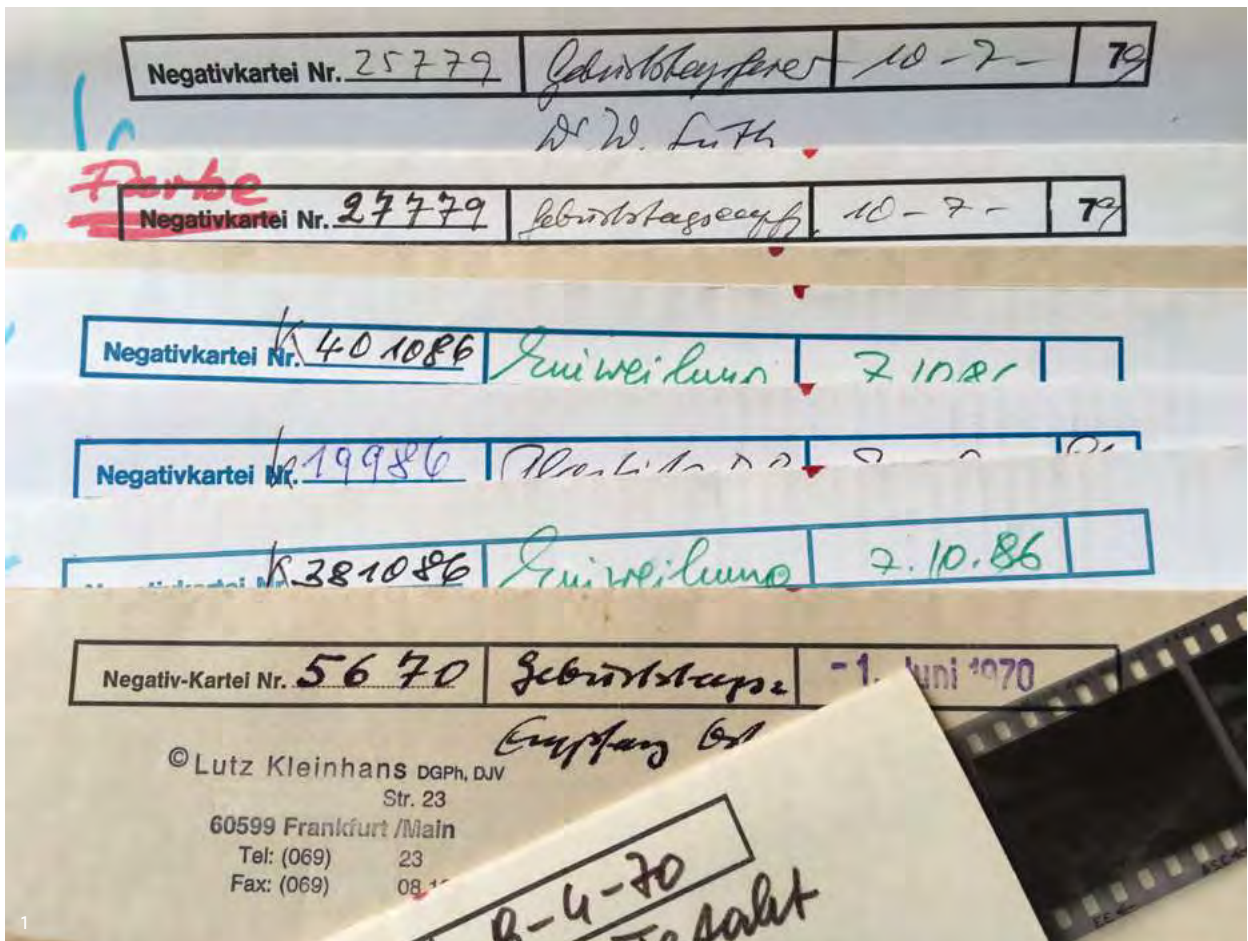 Negativkartei Nr. 25779 Geburtstagsfeier 10-7- 79
Dr W. Luth
Farbe
Negativkartei Nr. 27779 Geburtstagsempf. 10-7- 79
Negativkartei Nr. K 401086 Einweihung 7.10.86
Negativkartei Nr. K 19986
Negativkartei Nr. K 381086 Einweihung 7.10.86
Negativ-Kartei Nr. 5670 Geburtstags= -1. Juni 1970
Empfang
© Lutz Kleinhans DGPh, DJV
Str. 23
60599 Frankfurt /Main
Tel: (069) 23
Fax: (069) 08
8-4-70
1